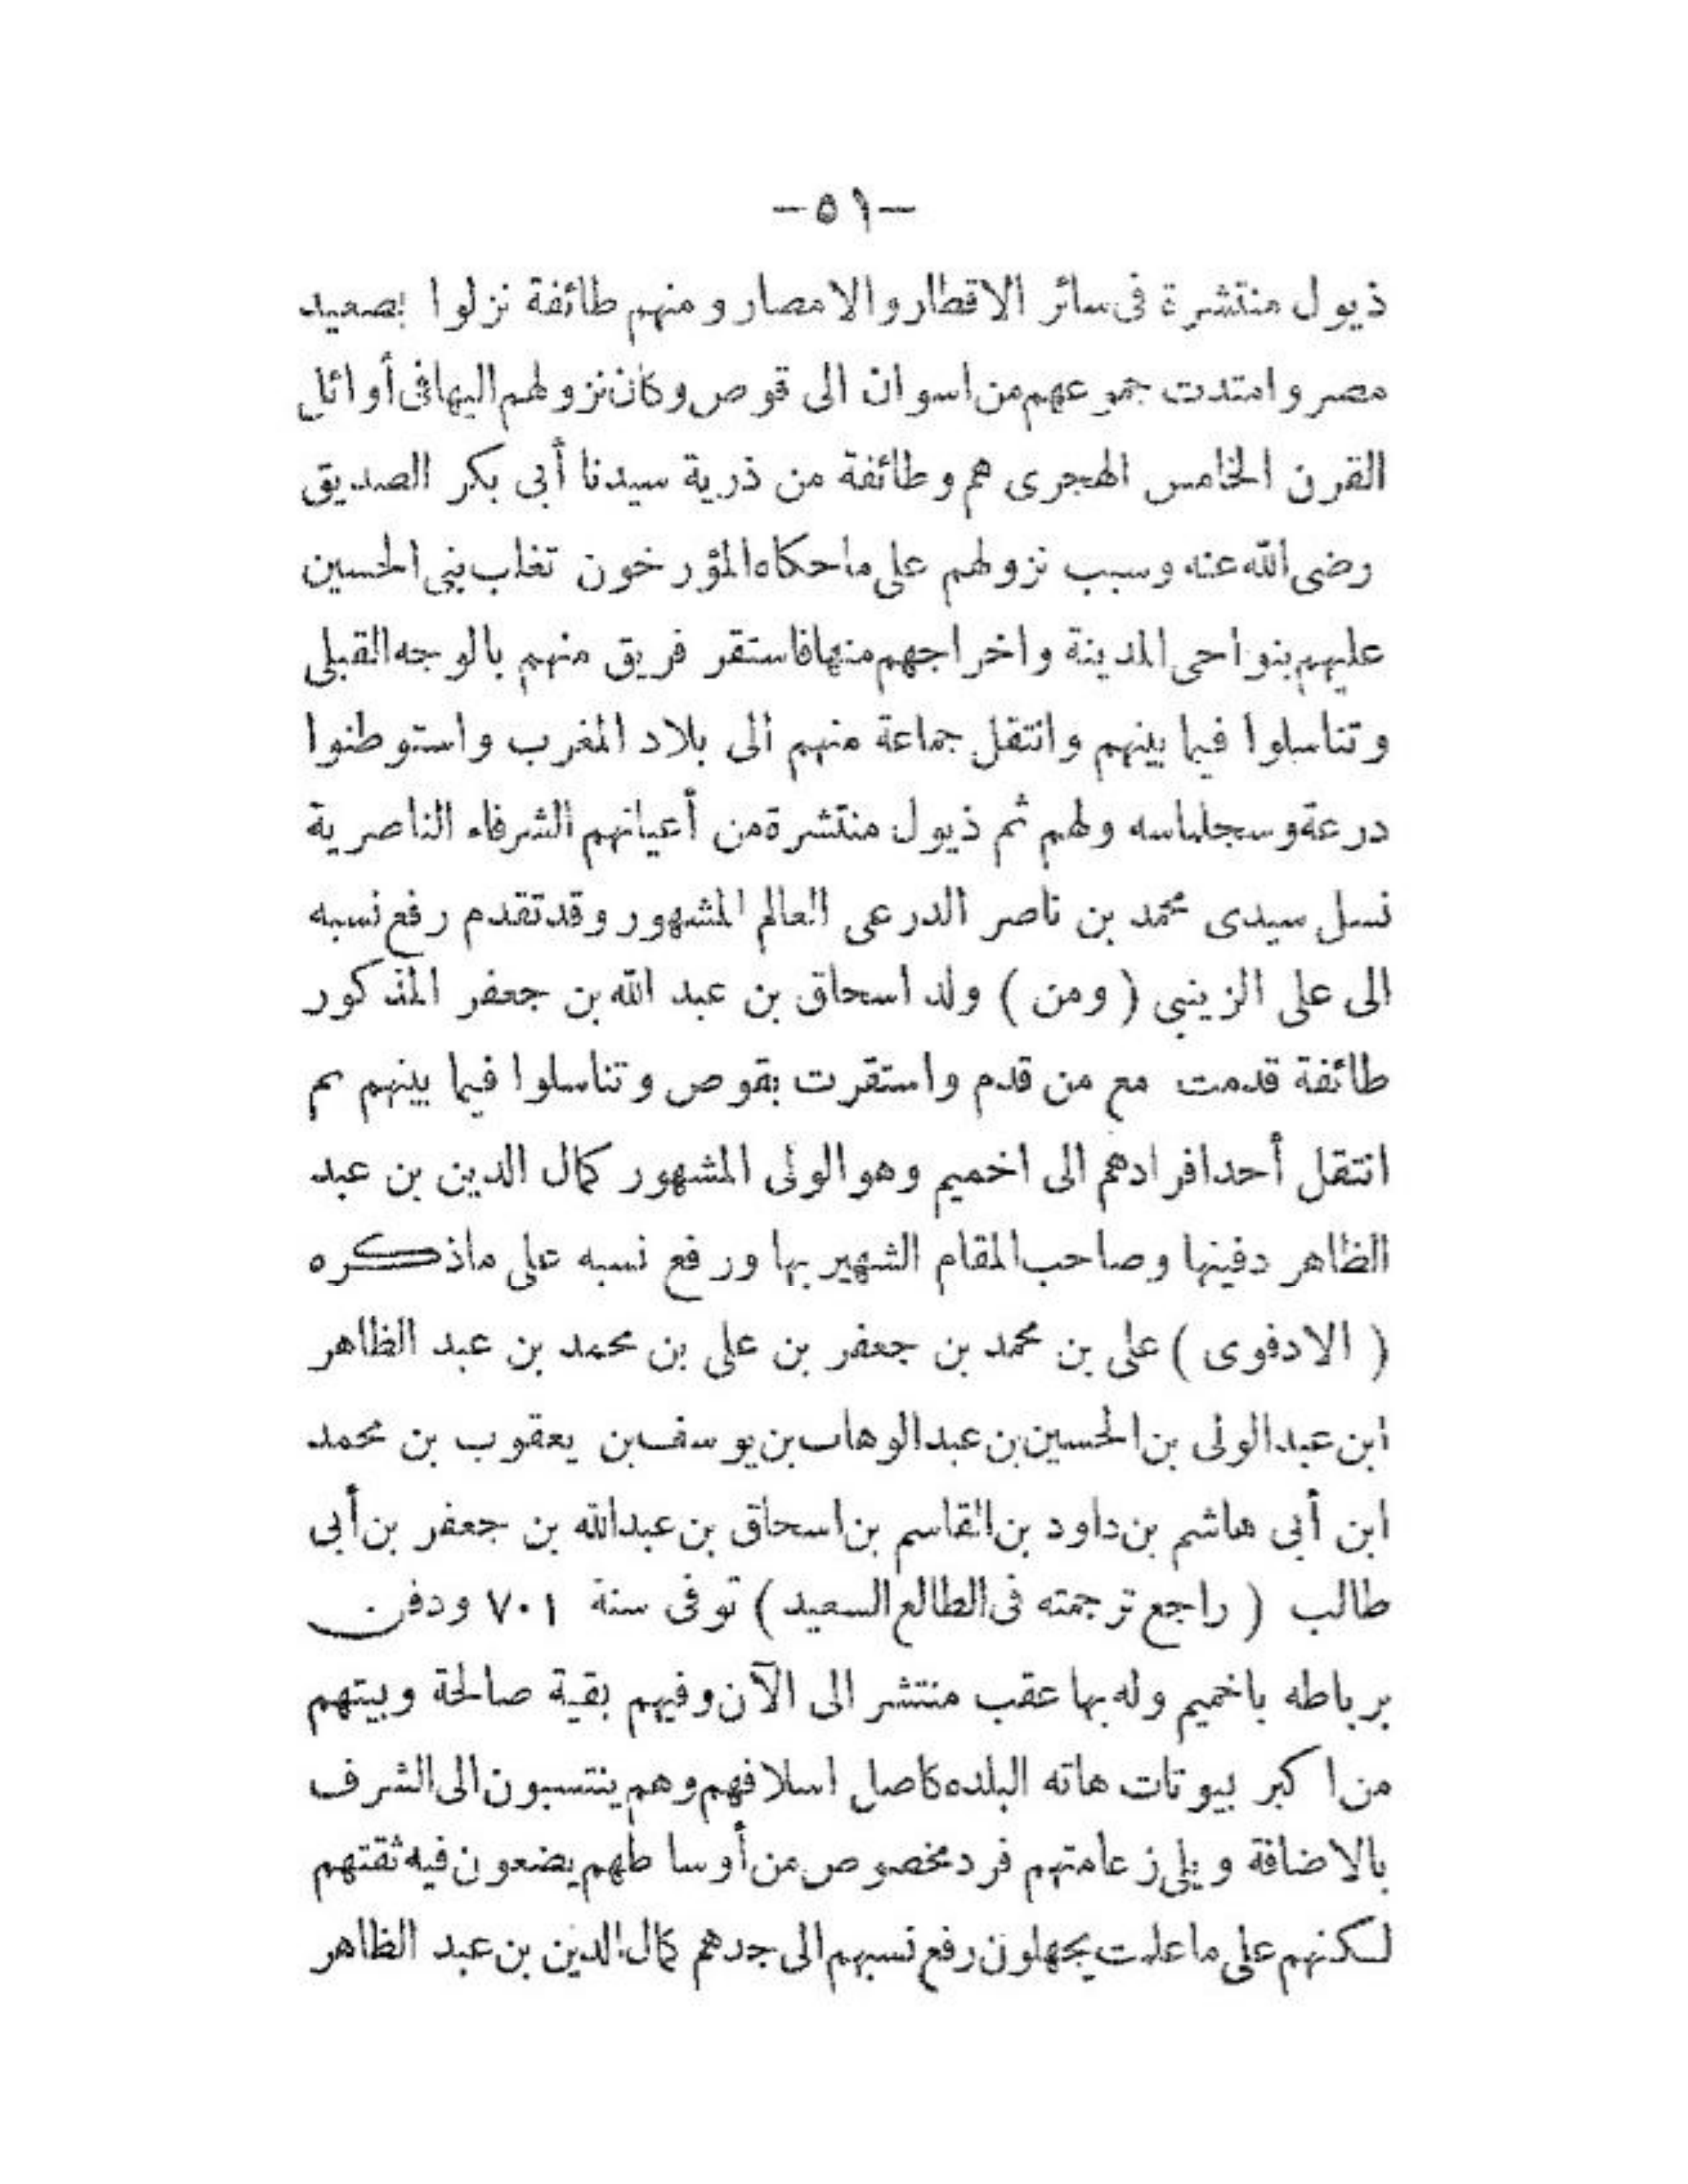 — ٥١ —
ذيول منتشرة فى سائر الاقطار والامصار ومنهم طائفة نزلوا بصعيد
مصر وامتدت جموعهم من اسوان الى قوص وكان نزولهم اليها فى أوائل
القرن الخامس الهجرى هم وطائفة من ذرية سيدنا أبى بكر الصديق
رضى الله عنه وسبب نزولهم على ماحكاه المؤرخون تغلب بنى الحسين
عليهم بنواحى المدينة واخراجهم منها فاستقر فريق منهم بالوجه القبلى
وتناسلوا فيما بينهم وانتقل جماعة منهم الى بلاد المغرب واستوطنوا
درعة وسجلماسه ولهم ثم ذيول منتشرة من أعيانهم الشرفاء الناصرية
نسل سيدى محمد بن ناصر الدرعى العالم المشهور وقد تقدم رفع نسبه
الى على الزينبى ( ومن ) ولد اسحاق بن عبد الله بن جعفر المذكور
طائفة قدمت مع من قدم واستقرت بقوص وتناسلوا فيما بينهم ثم
انتقل أحد افرادهم الى اخميم وهو الولى المشهور كمال الدين بن عبد
الظاهر دفينها وصاحب المقام الشهير بها ورفع نسبه على ماذكره
( الادفوى ) على بن محمد بن جعفر بن على بن محمد بن عبد الظاهر
ابن عبد الولى بن الحسين بن عبد الوهاب بن يوسف بن يعقوب بن محمد
ابن أبى هاشم بن داود بن القاسم بن اسحاق بن عبد الله بن جعفر بن أبى
طالب ( راجع ترجمته فى الطالع السعيد ) توفى سنة ٧٠١ ودفن
برباطه باخميم وله بها عقب منتشر الى الآن وفيهم بقية صالحة وبيتهم
من اكبر بيوتات هاته البلده كاصل اسلافهم وهم ينتسبون الى الشرف
بالاضافة ويلى زعامتهم فرد مخصوص من أوساطهم يضعون فيه ثقتهم
لكنهم على ما علمت يجهلون رفع نسبهم الى جدهم كمال الدين بن عبد الظاهر